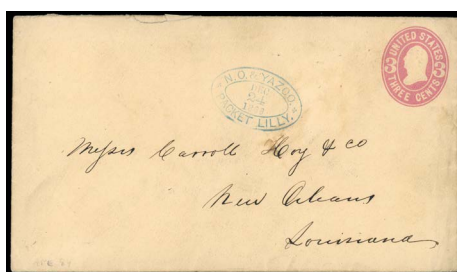 UNITED STATES
THREE CENTS
3 3
N.O. & YAZOO.
DEC
PACKET LILLY.
Messrs Carroll Hoy & co
New Orleans
Louisiana